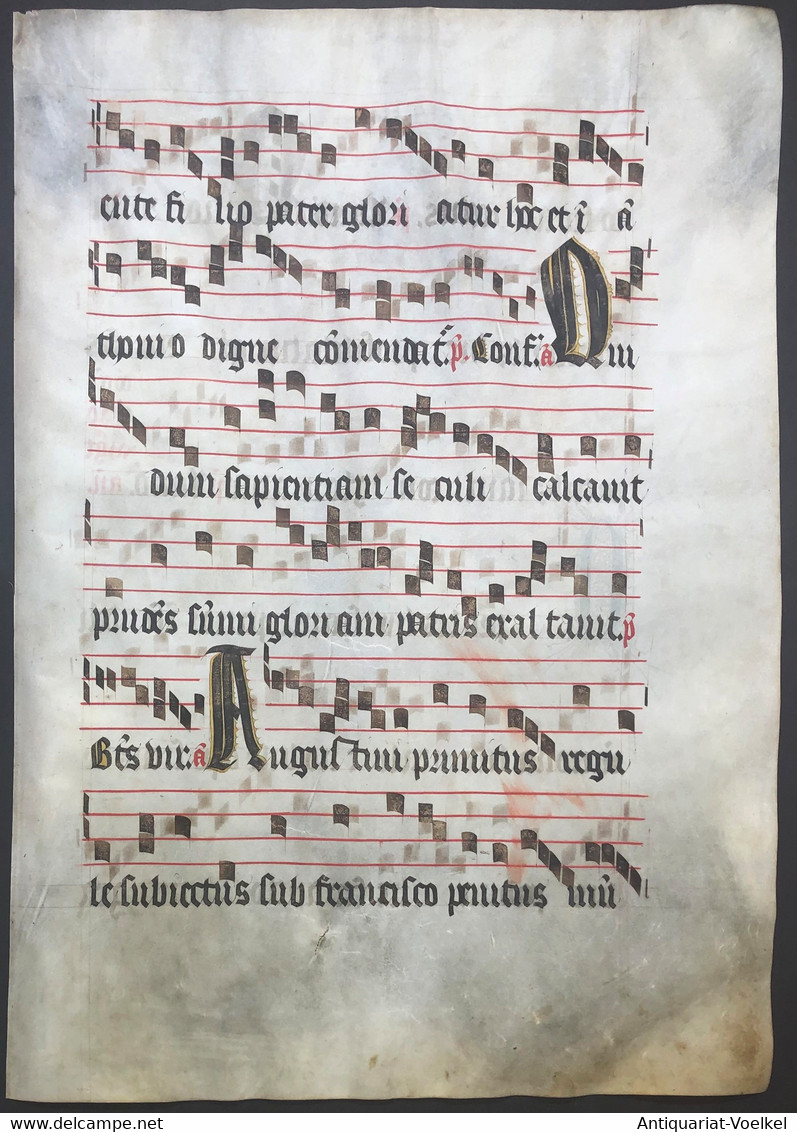 cute fi lio pater glori atur hoc et iᷓ aᷓ
thonio digne coᷓmendat᷑. pᷓ. Conf. aᷓ Dui
dum sapientiam se culi calcavit
prudeᷓs suᷓmi gloriam patris exal tavit. pᷓ
Btᷓs vir. aᷓ Augus tini primitus regu
le subiectus sub francisco penitus muᷓ
Antiquariat-Voelkel